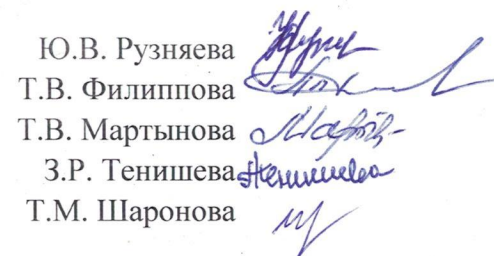 Ю.В. Рузняева
Т.В. Филиппова
Т.В. Мартынова
З.Р. Тенишева Тенишева
Т.М. Шаронова